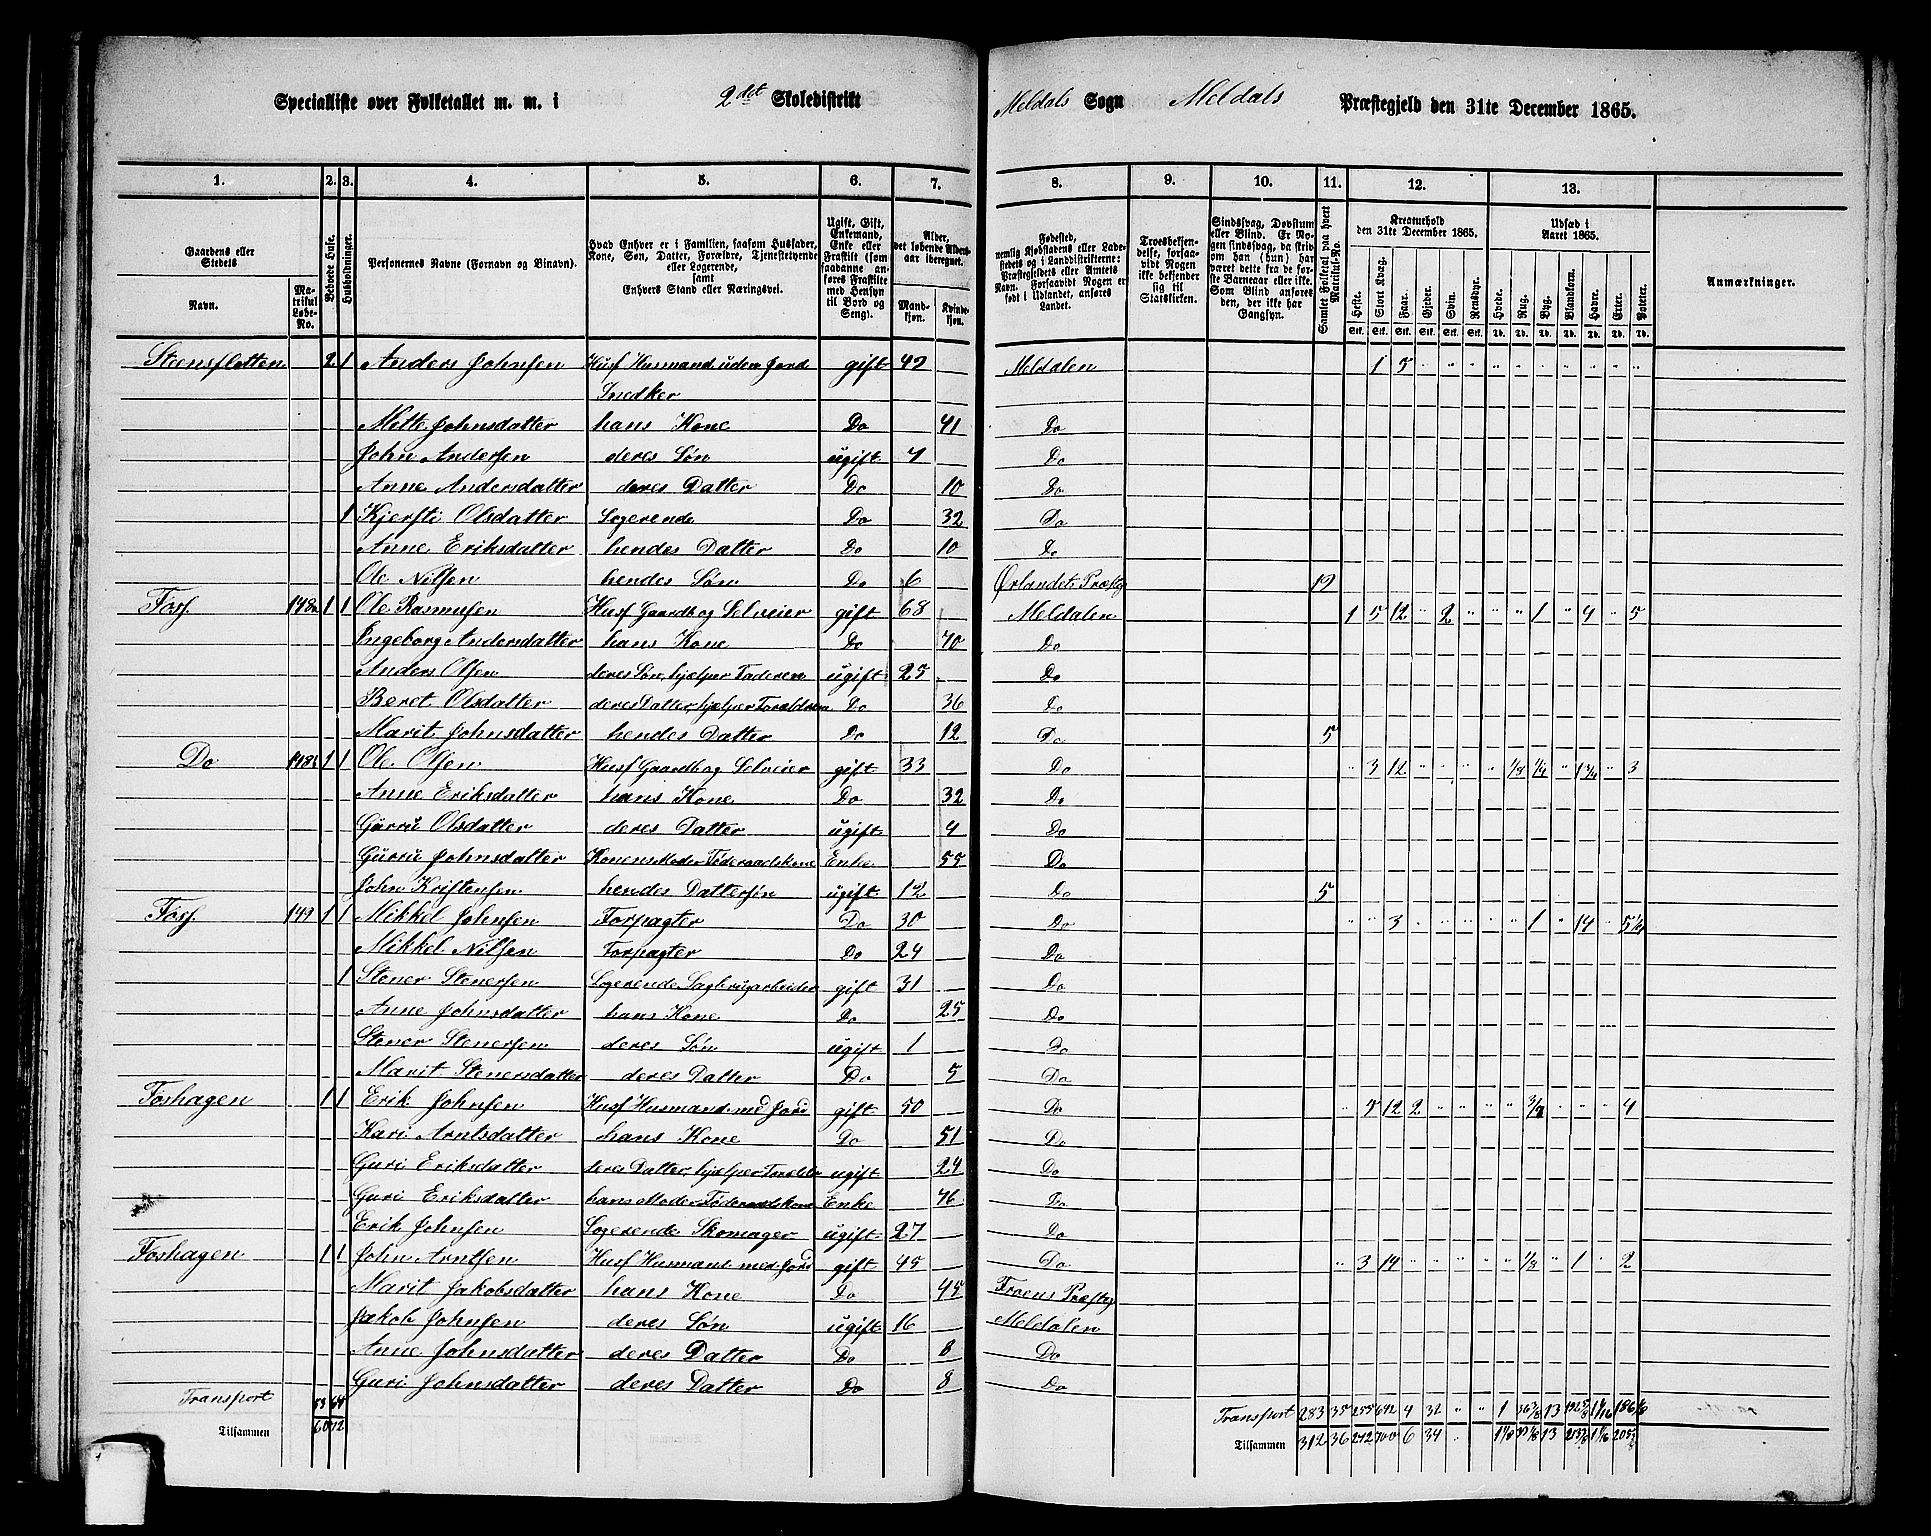 Specialliste over Folketallet m. m. i 2det Skoledistrikt Meldals Sogn Meldals Præstegjeld den 31te December 1865.
1. 2. 3. 4. 5. 6. 7. 8. 9. 10. 11. 12. 13.
Gaardens eller Stedets
Navn.
Matrikul Løbe-No.
Beboede Huse.
Husholdninger.
Personernes Navne (Fornavn og Binavn).
Hvad Enhver er i Familien, saasom Husfader, Kone, Søn, Datter, Forældre, Tjenestetyende eller Logerende, samt Enhvers Stand eller Næringsvei.
Ugift, Gift, Enkemand, Enke eller Fraskilt (som saadanne anføres Fraskilte med Hensyn til Bord og Seng).
Alder, det løbende Aldersaar iberegnet.
Mandkjøn.
Kvindekjøn.
Fødested, nemlig Kjøbstadens eller Ladestedets og i Landdistrikterne: Præstegjeldets eller Amtets Navn. Forsaavidt Nogen er født i Udlandet, anføres Landet.
Troesbekjendelse, forsaavidt Nogen ikke bekjender sig til Statskirken.
Sindssvag, Døvstum eller Blind. Er Nogen sindssvag, da skrives om han (hun) har været dette fra de første Barneaar eller ikke. Som Blind ansøres den, der ikke har Gangsyn.
Samlet Folketal paa hvert Matrikul-No.
Kreaturhold den 31te December 1865.
Heste. Stort Kvæg. Faar. Gjeder. Svin. Rensdyr.
Udsæd i Aaret 1865.
Hvede. Rug. Byg. Blandkorn. Havre. Erter. Poteter.
Anmærkninger.
Stensfletten 2 1 Anders Johnsen Husf Husmand uden Jord gift 42 Meldalen 1 5
Snedker
Mette Johnsdatter hans Kone Do 41 Do
John Andersen deres Søn ugift 7 Do
Anne Andersdatter deres Datter Do 10 Do
1 Kjersti Olsdatter Logerende Do 32 Do
Anne Eriksdatter hendes Datter Do 10 Do
Ole Nilsen hendes Søn Do 6 Ørlandets Præstg 12
Foss 148a 1 1 Ole Rasmusen Husf Gaardb og Selveier gift 68 Meldalen 1 5 12 " 2 " " " 1 " 4 " 5
Ingeborg Andersdatter hans Kone Do 70 Do
Anders Olsen deres Søn, hjelper Faderen ugift 25 Do
Beret Olsdatter deres Datter, hjelper Forældren Do 36 Do
Marit Johnsdatter hendes Datter Do 12 Do 5
Do 148b 1 1 Ole Olsen Husf Gaardb og Selveier gift 33 Do " 3 12 " " " " 1/8 1/4 " 1 3/4 " 3
Anne Eriksdatter hans Kone Do 32 Do
Gurru Olsdatter deres Datter ugift 4 Do
Gurru Johnsdatter Konens Moder Føderaadskone Enke 55 Do
John Kristensen hendes Dattersøn ugift 12 Do 5
Foss 149 1 1 Mikkel Johnsen Forpagter Do 30 Do " " 3 " " " " " 1 " 14 " 5 1/4
Mikkel Nilsen Forpagter Do 24 Do
1 Stener Stenersen Logerende Sagbrugarbeider gift 31 Do
Anne Johnsdatter hans Kone Do 25 Do
Stener Stenersen deres Søn ugift 1 Do
Marit Stenersdatter deres Datter Do 5 Do
Foshagen 1 1 Erik Johnsen Husf Husmand med Jord gift 50 Do " 5 12 2 " " " " 3/8 " " " 4
Kari Arntsdatter hans Kone Do 51 Do
Guri Eriksdatter deres Datter, hjelper Foreldre ugift 24 Do
Guri Eriksdatter hans Moder Føderaadskone Enke 76 Do
Erik Johnsen Logerende Skomager ugift 27 Do
Foshagen 1 1 John Arntsen Husf Husmand med Jord gift 45 Do " 3 14 " " " " " 1/8 " 1 " 2
Marit Jakobsdatter hans Kone Do 45 Froens Præstg
Jakob Johnsen deres Søn ugift 16 Meldalen
Anne Johnsdatter deres Datter Do 8 Do
Guri Johnsdatter deres Datter Do 8 Do
Transport 53 64 Transport 283 35 255 642 4 32
Tilsammen 60 72 Tilsammen 312 36 272 700 6 34